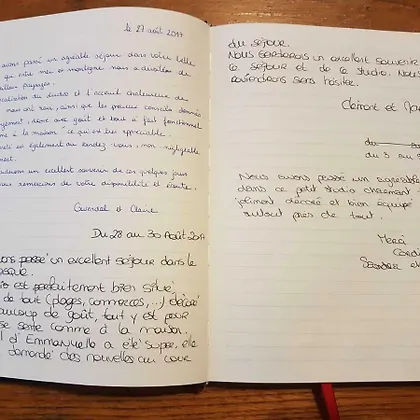 le 27 août 2017
avons passé un agréable séjour dans votre belle
que entre mer et montagne nous a dévoilé de
paysages.
du studio et l'accueil chaleureux de
nous ont ravis, ainsi que les précieux conseils donnés
décoré avec goût et tout à fait fonctionnel
à la maison" ce qui est très appréciable.
est également au rendez-vous, non négligeable
un excellent souvenir de ces quelques jours
vous remercions de votre disponibilité et écoute.
Gwendal et Claire
Du 28 au 30 Août 2017
passé un excellent séjour dans le
est parfaitement bien situé
de tout (plages, commerces,...) décoré
beaucoup de goût, tout y est pour
se sente comme à la maison.
d'Emmanuelle a été super, elle
demandé des nouvelles au cour
du séjour.
Nous garderons un excellent souvenir
séjour et de le studio. Nous
reviendrons sans hésiter.
Clément et
du
du 3 au
Nous avons passé un agréable
dans ce petit studio
joliment décoré et bien équipé
surtout près de tout.
Merci